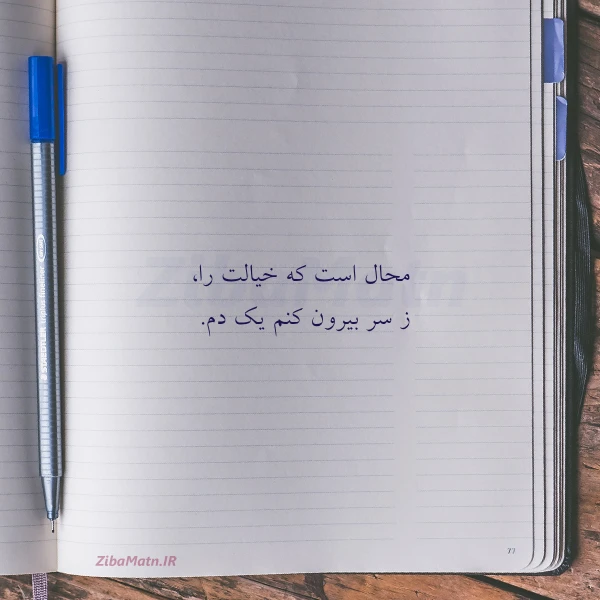 محال است که خیالت را،
ز سر بیرون کنم یک دم.
ZibaMatn
ZibaMatn.IR
77